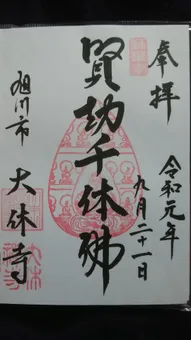 奉拝
令和元年
九月二十一日
賢劫千体佛
旭川市
大休寺